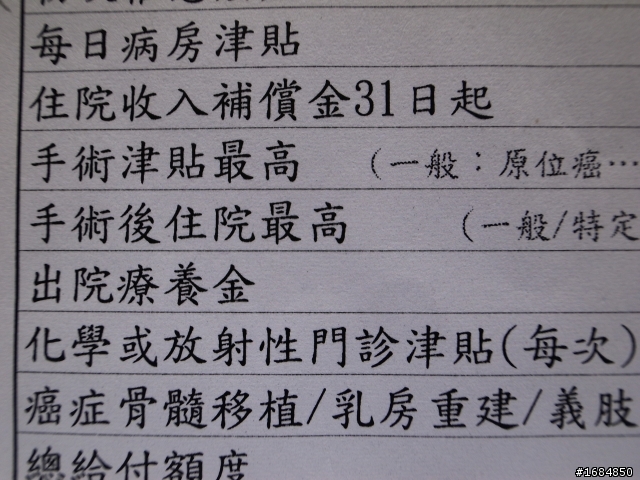 每日病房津貼
住院收入補償金31日起
手術津貼最高 (一般：原位癌…
手術後住院最高 (一般/特定
出院療養金
化學或放射性門診津貼(每次)
癌症骨髓移植/乳房重建/義肢
總給付額度
#1684850